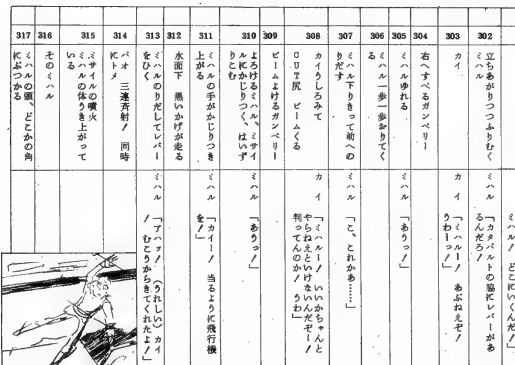 ミハル/ どこにいくんだ/」
302
立ちあがりつつふりむく
ミハル
ミハル
「カタパルトの脇にレバーがあ
るんだろ/
303
カイ
カイ
「ミハルー/ あぶねえぞ/
うわーっ/」
304
右へすべるガンペリー
305
ミハルゆれる
ミハル
「ありっ/」
306
ミハル一歩一歩おりてく
る
307
ミハル下りきって前への
りだす
ミハル
「こ、これかあ……」
308
カイうしろみて
OUT尻 ビームくる
カイ
「ミハルー/ いいかちゃんと
やらねえといけないんだぞー/
判ってんのか/ うわ」
309
ビームよけるガンペリー
310
よろけるミハル、ミサイ
ルにかじりつく、はいず
りこむ
ミハル
「ありっ/」
311
ミハルの手がかじりつき
上がる
ミハル
「カイー/ 当るように飛行機
を/」
312
水面下 黒いかげが走る
313
ミハルのりだしてレバー
をひく
ミハル
「アハッ/ (うれしい) カイ
/ むこうからきてくれたよ/」
314
バオ 三連斉射/ 同時
にトメ
315
ミサイルの噴火
ミハルの体うき上がって
いる
316
そのミハル
317
ミハルの頭、どこかの角
にぶつかる